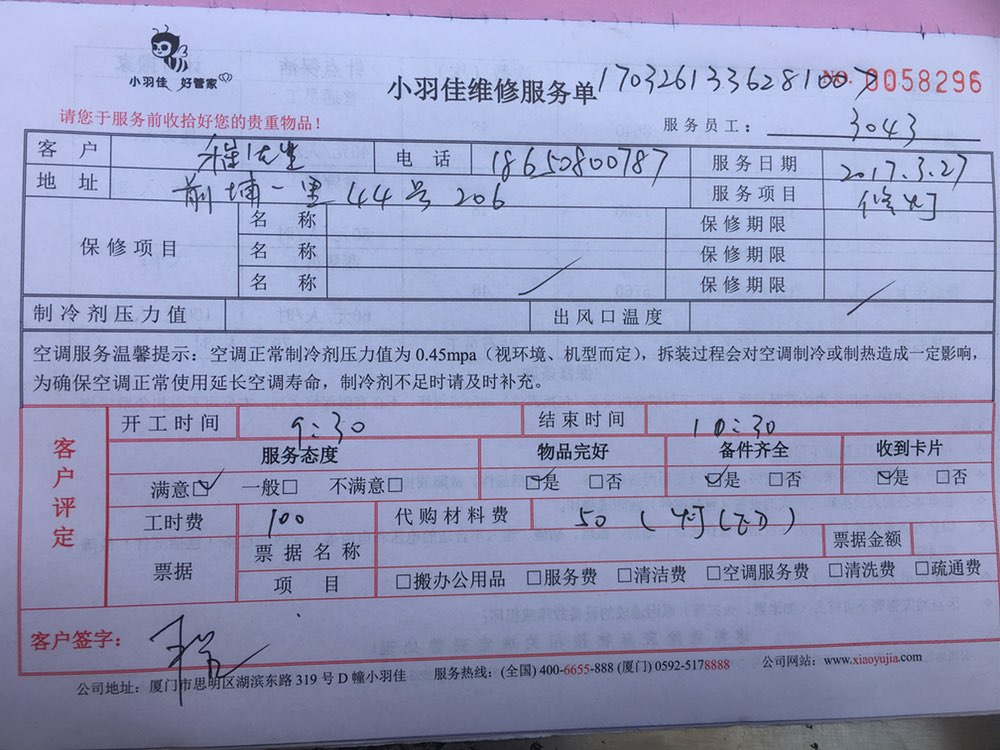 小羽佳 好管家
小羽佳维修服务单 17032613362810077 No. 0058296
请您于服务前收拾好您的贵重物品！
服务员工： 3043
客户 程先生 电话 18650800787 服务日期 2017.3.27
地址 前埔一里44号206 服务项目 修灯
保修项目
名称 保修期限
名称 保修期限
名称 保修期限
制冷剂压力值 出风口温度
空调服务温馨提示：空调正常制冷剂压力值为 0.45mpa（视环境、机型而定），拆装过程会对空调制冷或制热造成一定影响，
为确保空调正常使用延长空调寿命，制冷剂不足时请及时补充。
客户评定
开工时间 9:30 结束时间 10:30
服务态度 物品完好 备件齐全 收到卡片
满意☑ 一般□ 不满意□ ☑是 □否 ☑是 □否 ☑是 □否
工时费 100 代购材料费 50（灯LED）
票据 票据名称 票据金额
项目 □搬办公用品 □服务费 □清洁费 □空调服务费 □清洗费 □疏通费
客户签字： 程
公司地址：厦门市思明区湖滨东路 319 号 D 幢小羽佳 服务热线：(全国) 400-6655-888 (厦门) 0592-5178888 公司网站：www.xiaoyujia.com